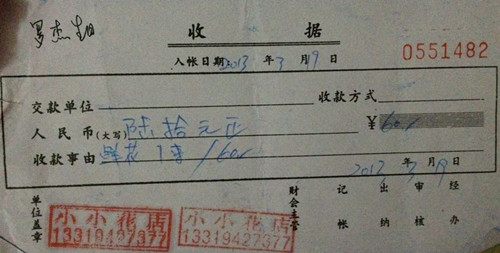 罗杰生日
收 据
0551482
入帐日期:2013 年 3 月 19 日
交款单位 收款方式
人民币(大写) 陆拾元正 ¥60/
收款事由 鲜花1束/60/
2013 年 3 月 19 日
单位盖章 财会主管 记帐 出纳 审核 经办
小小花店 小小花店
13319427377 13319427377